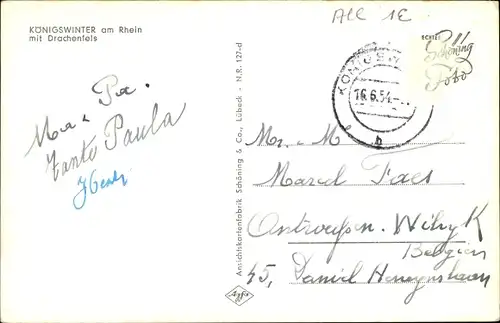 KÖNIGSWINTER am Rhein
mit Drachenfels
Ma - Pa.
Tante Paula
Ansichtskartenfabrik Schöning & Co., Lübeck - N.R. 127-d
Agfa
ALC 1E
ECHTES
Schöning
Foto
KÖNIGSW
16.6.54.
b
Mr. - M
Marcel Faes
Antwerpen - Wilryk
Belgien
45, Daniel